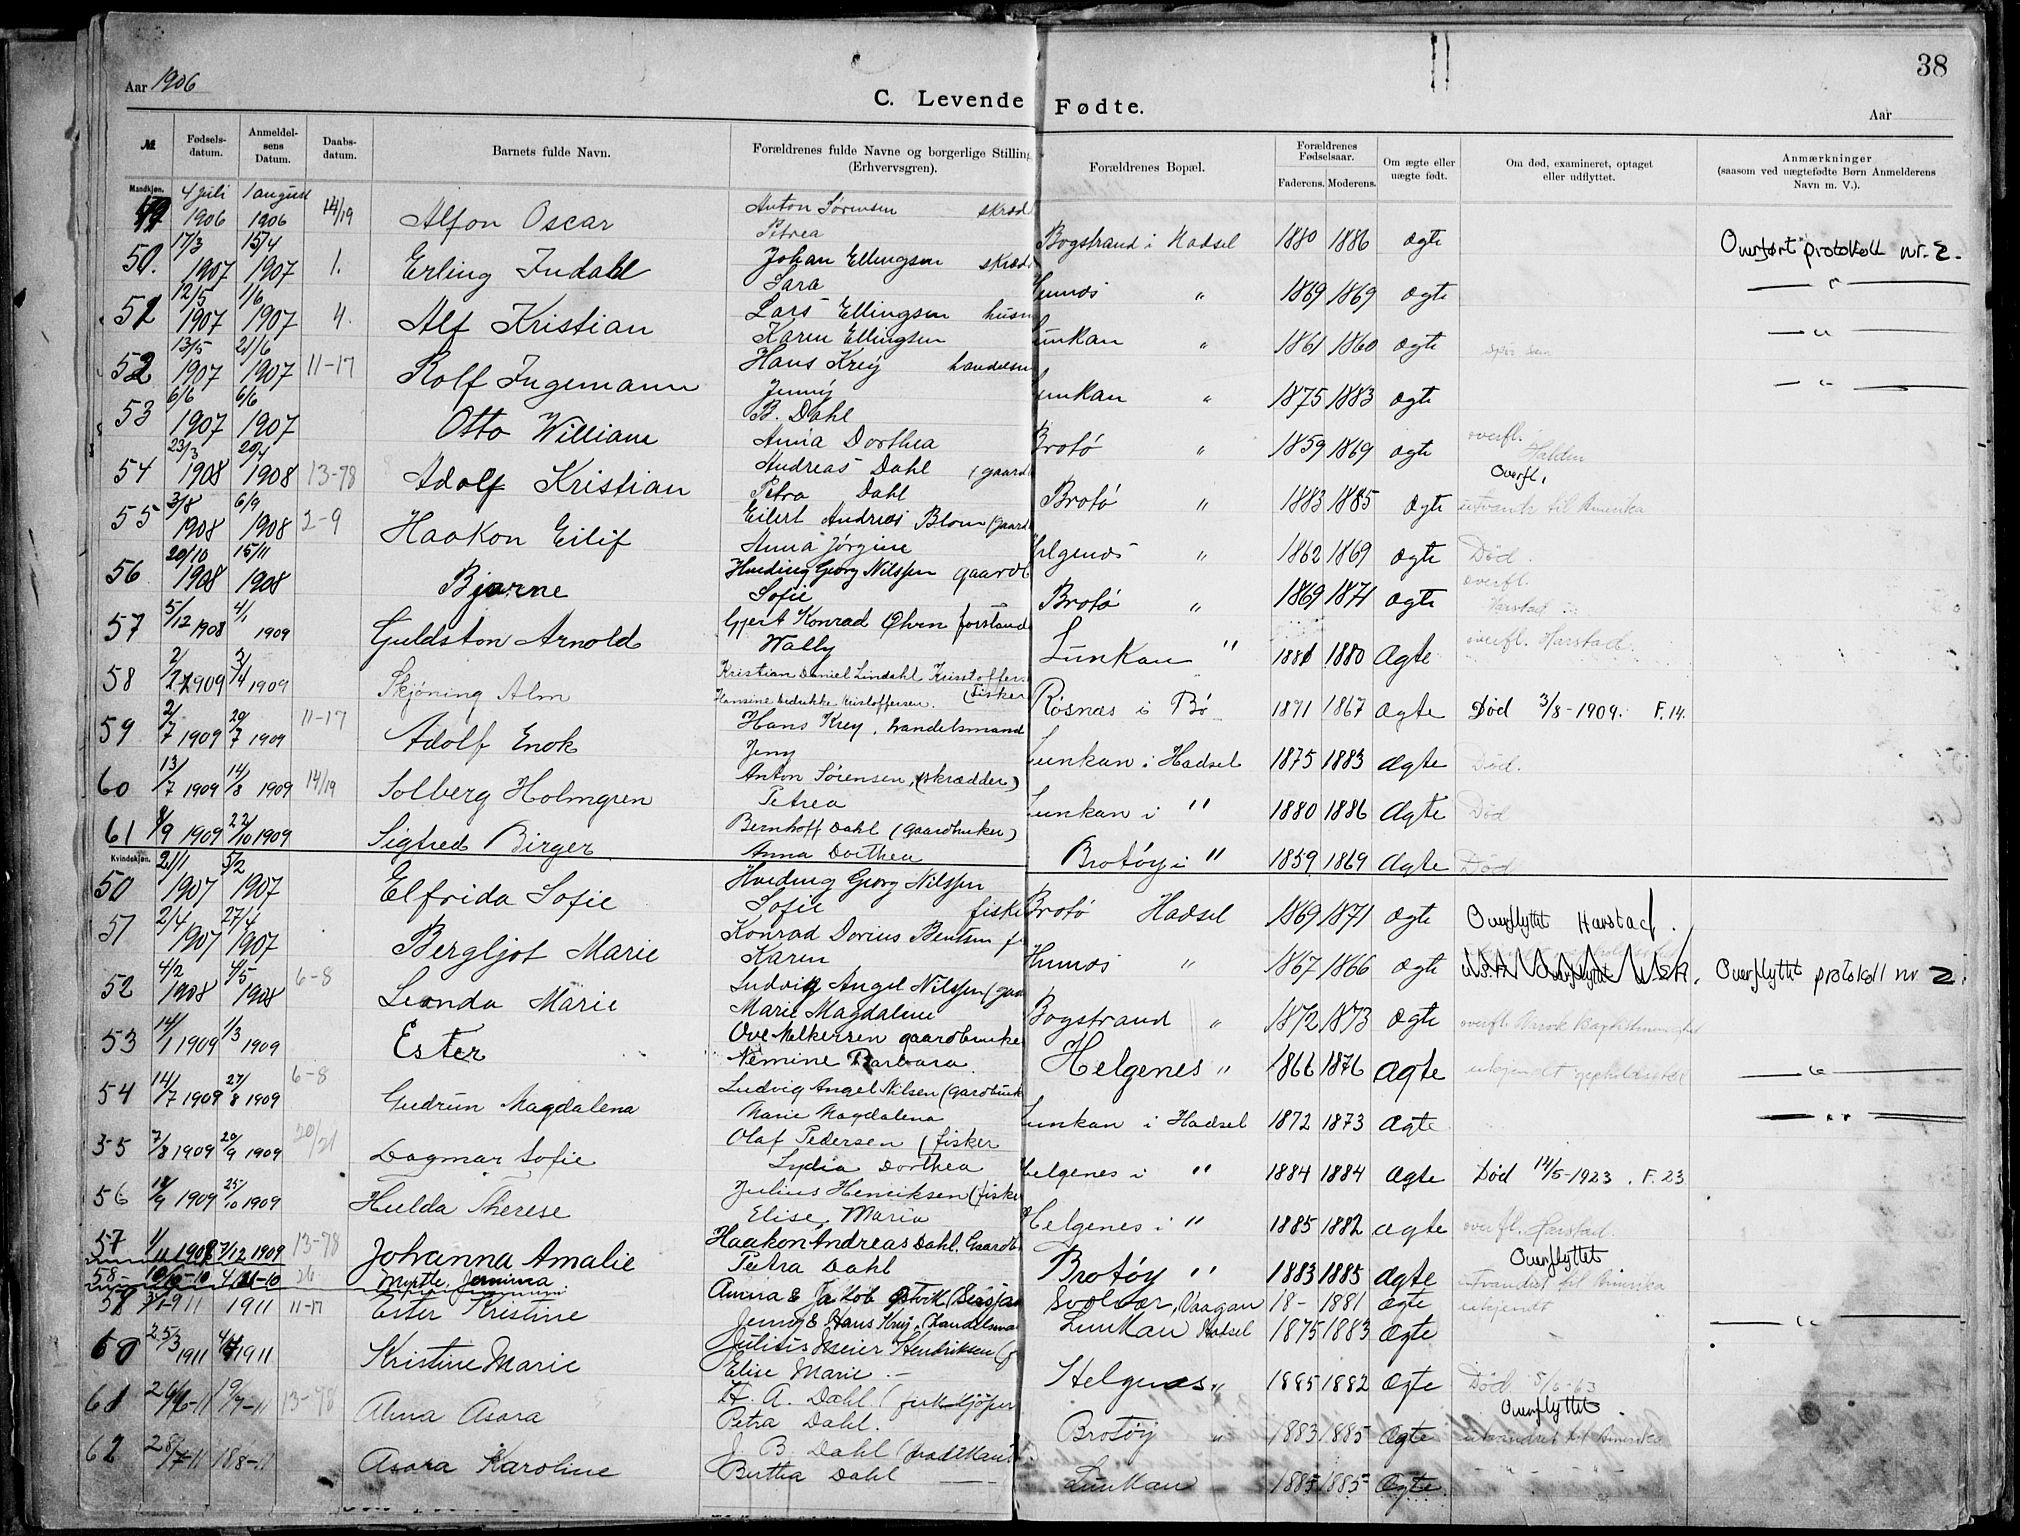 Aar 1906
38
C. Levende Fødte.
Aar
№
Fødsels-datum.
Anmeldel-sens Datum.
Daabs-datum.
Barnets fulde Navn.
Forældrenes fulde Navne og borgerlige Stilling (Erhvervsgren).
Forældrenes Bopæl.
Forældrenes Fødselsaar.
Faderens. Moderens.
Om ægte eller uægte født.
Om død, examineret, optaget eller udflyttet.
Anmærkninger (saasom ved uægtefødte Børn Anmelderens Navn m. V.).
Mandkjøn.
49 4 Juli 1906 1 august 1906 14/19 Alfon Oscar Anton Sørensen skræd Bogstrand i Hadsel 1880 1886 ægte Overført protokoll nr. 2.
Petrea
50. 17/3 1907 15/4 1907 1. Erling Indahl Johan Ellingsen skræd " 1869 1869 ægte — " —
Sara
51 12/5 1907 1/6 1907 4. Alf Kristian Lars Ellingsen husm Lunkan " 1861 1860 ægte — " —
Karen Ellingsen
52 13/5 1907 21/6 1907 11-17 Rolf Ingemann Hans Krey handelsm Lunkan " 1875 1883 ægte — " —
Jenny
53 6/6 1907 6/6 1907 Otto William B. Dahl Brotø " 1859 1869 ægte overfl. Halden
Anna Dorthea
54 23/3 1908 20/4 1908 13-78 Adolf Kristian Andreas Dahl (gaard Brotø " 1883 1885 ægte Overfl. til Amerika
Petra Dahl
55 3/8 1908 6/9 1908 2-9 Haakon Eilif Eilert Andreas Blom (gaard Helgenes " 1862 1869 ægte Død
Anna Jørgine
56 20/10 1908 15/11 1908 Bjarne Hveding Georg Nilssen gaardb Brotø " 1869 1871 ægte overfl. Harstad
Sofie
57 5/12 1908 4/1 1909 Guldston Arnold Gjert Konrad Olsen forstand Lunkan " 1881 1880 Ægte overfl. Harstad
Wally
58 2/2 1909 3/4 1909 Skjøning Alm Kristian Daniel Lindahl Kristoffers (Fisker Røsnæs i Bø 1871 1867 Ægte Død 3/8-1909. F. 14.
Hansine Kristoffersen.
59 2/7 1909 20/7 1909 11-17 Adolf Enok Hans Krey, handelsmand Lunkan i Hadsel 1875 1883 Ægte Død.
Jeny
60 13/7 1909 14/8 1909 14/19 Solberg Holmgren Anton Sørensen, (skrædder) Lunkan i " 1880 1886 Ægte Død
Petrea
61 8/9 1909 22/10 1909 Sigfred Birger Bernhoff Dahl (Gaardbruker) Brotøy i " 1859 1869 Ægte Død
Anna Dorthea
Kvindekjøn.
50 21/1 1907 5/2 1907 Elfrida Sofie Hveding Georg Nilssen Brotø Hadsel 1869 1871 ægte Overflyttet Harstad.
Sofie fiske
51 2/4 1907 27/4 1907 Bergljot Marie Konrad Dorius Bentsen " 1867 1866 ægte Overflyttet protokoll nr 2.
Karen
52 4/2 1908 4/5 1908 6-8 Leonda Marie Ludvig Angel Nilssen (gaa Bogstrand " 1872 1873 ægte overfl.
Marie Magdalene
53 14/1 1909 1/3 1909 Ester Ove Melkersen gaardbruker Helgenes " 1866 1876 Ægte — " —
Nemine Barbara.
54 14/7 1909 27/8 1909 6-8 Gudrun Magdalena Ludvig Angel Nilsen (Gardbruk Lunkan i Hadsel 1872 1873 Ægte — " —
Marie Magdalena
55 7/8 1909 20/9 1909 20/21 Dagmar Sofie Olaf Pedersen (fisker Helgenes i " 1884 1884 Ægte Død 14/5-1923. F. 23
Lydia Dorthea
56 18/9 1909 25/10 1909 Hulda Therese Julius Henriksen (fisker Helgenes i " 1885 1882 ægte overfl. Harstad.
Elise Maria
57 1/11 1908 7/12 1909 13-78 Johanna Amalie Haakon Andreas Dahl. Gaardb Brotøy " 1883 1885 Ægte Overflyttet til Amerika
Petra Dahl
58 10/10-10 26 Myrtle Jemima Amina & Jakob Svolvær, Vaagan 18- 1881 Ægte ukjendt
59 1911 1911 11-17 Ester Kristine Jenny & Hans Krey, Handelsma Lunkan Hadsel 1875 1883 Ægte — " —
60 25/3 1911 1911 Kristine Marie Julius Meier Hendriksen Helgenes " 1885 1882 Ægte Død 8/6-63
Elise Marie —
61 26/6-11 19/7-11 13-78 Alma Asora H. A. Dahl (fiskekjøper Brotøy " 1883 1885 Ægte Overflyttet. utvandret til Amerika
Petra Dahl.
62 28/7-11 18/8-11 Asora Karoline J. B. Dahl Lunkan 1885 1885 Ægte.
Bertha Dahl